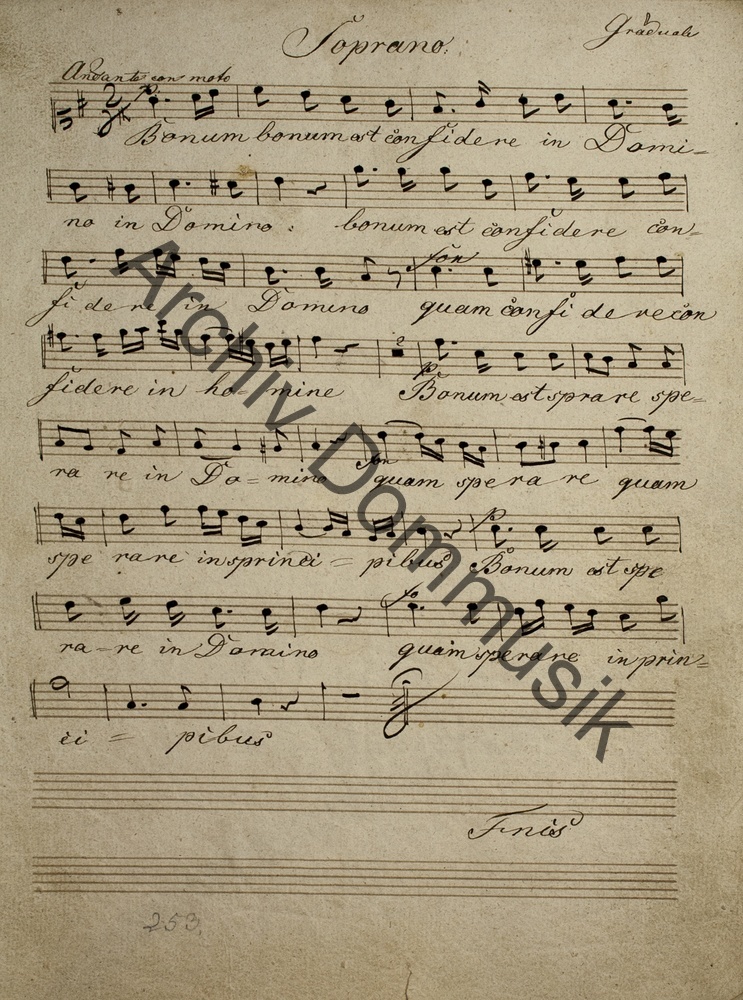 Soprano.
Graduale
Andante con moto
2/4 p
Bonum bonum est confidere in Domi=
no in Domino : bonum est confidere con=
for
fidere in Domino quam confidere con
2
fidere in ho=mine p Bonum est sprare spe=
for
rare in Do=mino quam sperare quam
p
sperare in princi=pibus Bonum est spe
fo
ra-re in Domino quam sperare in prin=
ci = pibus
Finis
253.
Archiv Dommusik